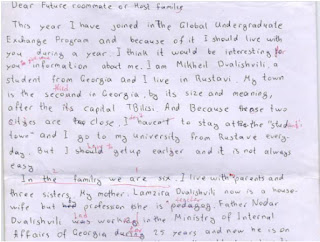 Dear future roommate or Host family
This year I have joined in the Global Undergraduate
Exchange Program and because of it I should live with
you during a year. I think it would be interesting to
you information about me. I am Mikheil Dvalishvili, a
student from Georgia and I live in Rustavi. My town
is the second in Georgia, by its size and meaning,
after the its capital TBilisi. And Because these two
cities are too close, I haven't to stay at the "student
town" and I go to my university from Rustave every-
day. But I should get up earlier and it is not always
easy.
In the familry we are six. I live with parents and
three sisters. My mother, Lamzira Dvalishvili now is a house-
wife but profession she is pedagog. Father Nodar
Dvalishvili was working in the Ministry of Internal
Affairs of Georgia during 25 years and now he is on